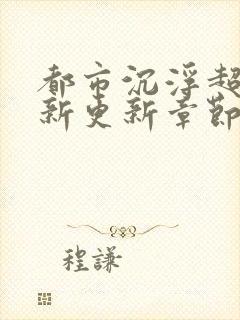 都市沉浮超
新更新章節
程謙